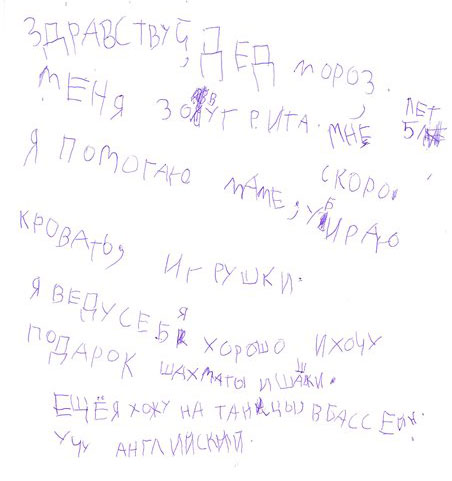 ЗДРАВСТВУЙ, ДЕД МОРОЗ.
МЕНЯ ЗОВУТ РИТА. МНЕ, 5 ЛЕТ
Я ПОМОГАЮ МАМЕ, УБИРАЮ СКОРО.
КРОВАТЬ, ИГРУШКИ.
Я ВЕДУ СЕБЯ ХОРОШО И ХОЧУ
ПОДАРОК ШАХМАТЫ И ШАШКИ.
ЕЩЁ Я ХОЖУ НА ТАНЦЫ, В БАССЕЙН.
УЧУ АНГЛИЙСКИЙ.